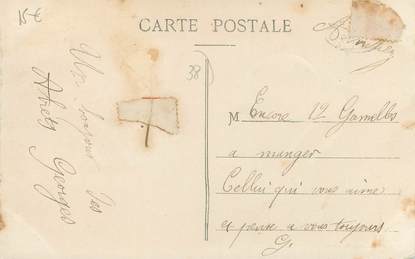 15€
CARTE POSTALE
38
Un bonjour des
Georges
M Encore 12 Gamelles
a manger
Cellui qui vous aime
et pense a vous toujours
G.